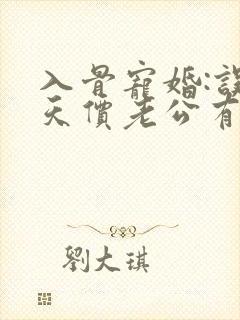 入骨寵婚:誤
天價老公有
劉大琪